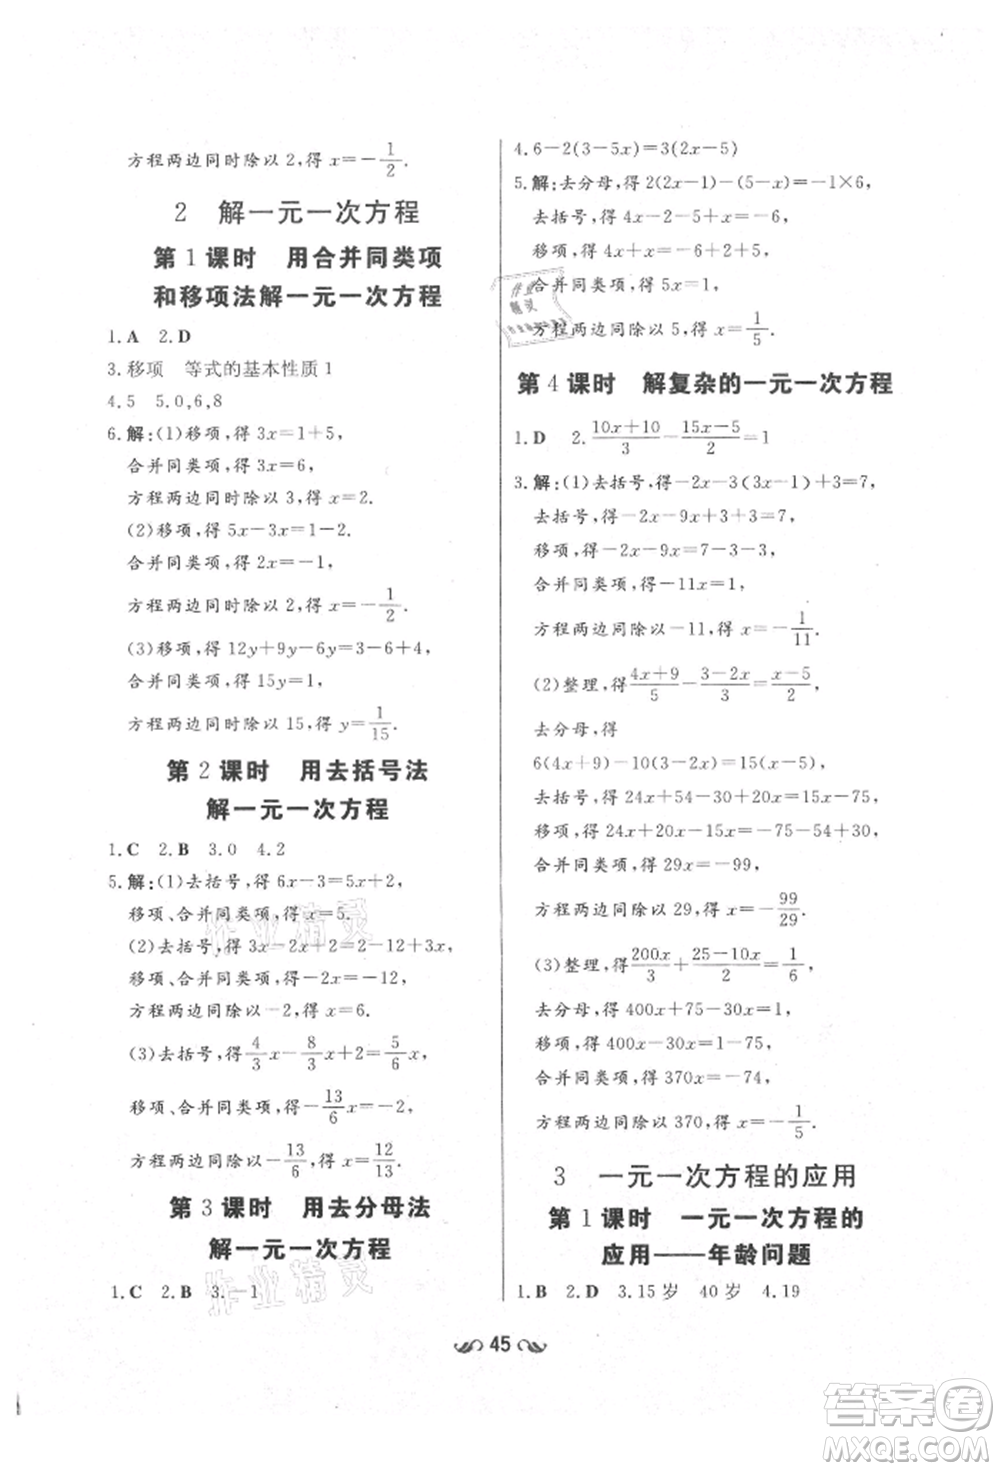 方程两边同时除以 2,得 x=-1/2.
2 解一元一次方程
第 1 课时 用合并同类项
和移项法解一元一次方程
1.A 2.D
3.移项 等式的基本性质 1
4.5 5.0,6,8
6.解:(1)移项,得 3x=1+5,
合并同类项,得 3x=6,
方程两边同时除以 3,得 x=2.
(2)移项,得 5x-3x=1-2,
合并同类项,得 2x=-1,
方程两边同时除以 2,得 x=-1/2.
(3)移项,得 12y+9y-6y=-3+4,
合并同类项,得 15y=1,
方程两边同时除以 15,得 y=1/15.
第 2 课时 用去括号法
解一元一次方程
1.C 2.B 3.0 4.2
5.解:(1)去括号,得 6x-3=5x+2,
移项、合并同类项,得 x=5.
(2)去括号,得 3x-2x+2=-12+3x,
移项、合并同类项,得-2x=-12,
方程两边同除以-2,得 x=6.
(3)去括号,得 4/3x-8/3x+2=5/6x,
移项、合并同类项,得-13/6x=-2,
方程两边同除以-13/6,得 x=12/13.
第 3 课时 用去分母法
解一元一次方程
1.C 2.B 3.-1
4.6-2(3-5x)=3(2x-5)
5.解:去分母,得 2(2x-1)-(5-x)=-1×6,
去括号,得 4x-2-5+x=-6,
移项,得 4x+x=-6+2+5,
合并同类项,得 5x=1,
方程两边同除以 5,得 x=1/5.
第 4 课时 解复杂的一元一次方程
1.D 2.(10x+10)/3-(15x-5)/2=1
3.解:(1)去括号,得-2x-3(3x-1)+3=7,
去括号,得-2x-9x+3+3=7,
移项,得-2x-9x=7-3-3,
合并同类项,得-11x=1,
方程两边同除以-11,得 x=-1/11.
(2)整理,得(4x+9)/5-(3-2x)/3=(x-5)/2,
去分母,得
6(4x+9)-10(3-2x)=15(x-5),
去括号,得 24x+54-30+20x=15x-75,
移项,得 24x+20x-15x=-75-54+30,
合并同类项,得 29x=-99,
方程两边同除以 29,得 x=-99/29.
(3)整理,得200x/3+(25-10x)/2=1/6,
去分母,得 400x+75-30x=1,
移项,得 400x-30x=1-75,
合并同类项,得 370x=-74,
方程两边同除以 370,得 x=-1/5.
3 一元一次方程的应用
第 1 课时 一元一次方程的
应用——年龄问题
1.B 2.D 3.15 岁 40 岁 4.19
45
作业精灵
作业精灵
作业
精灵
答案卷
MXQE.COM